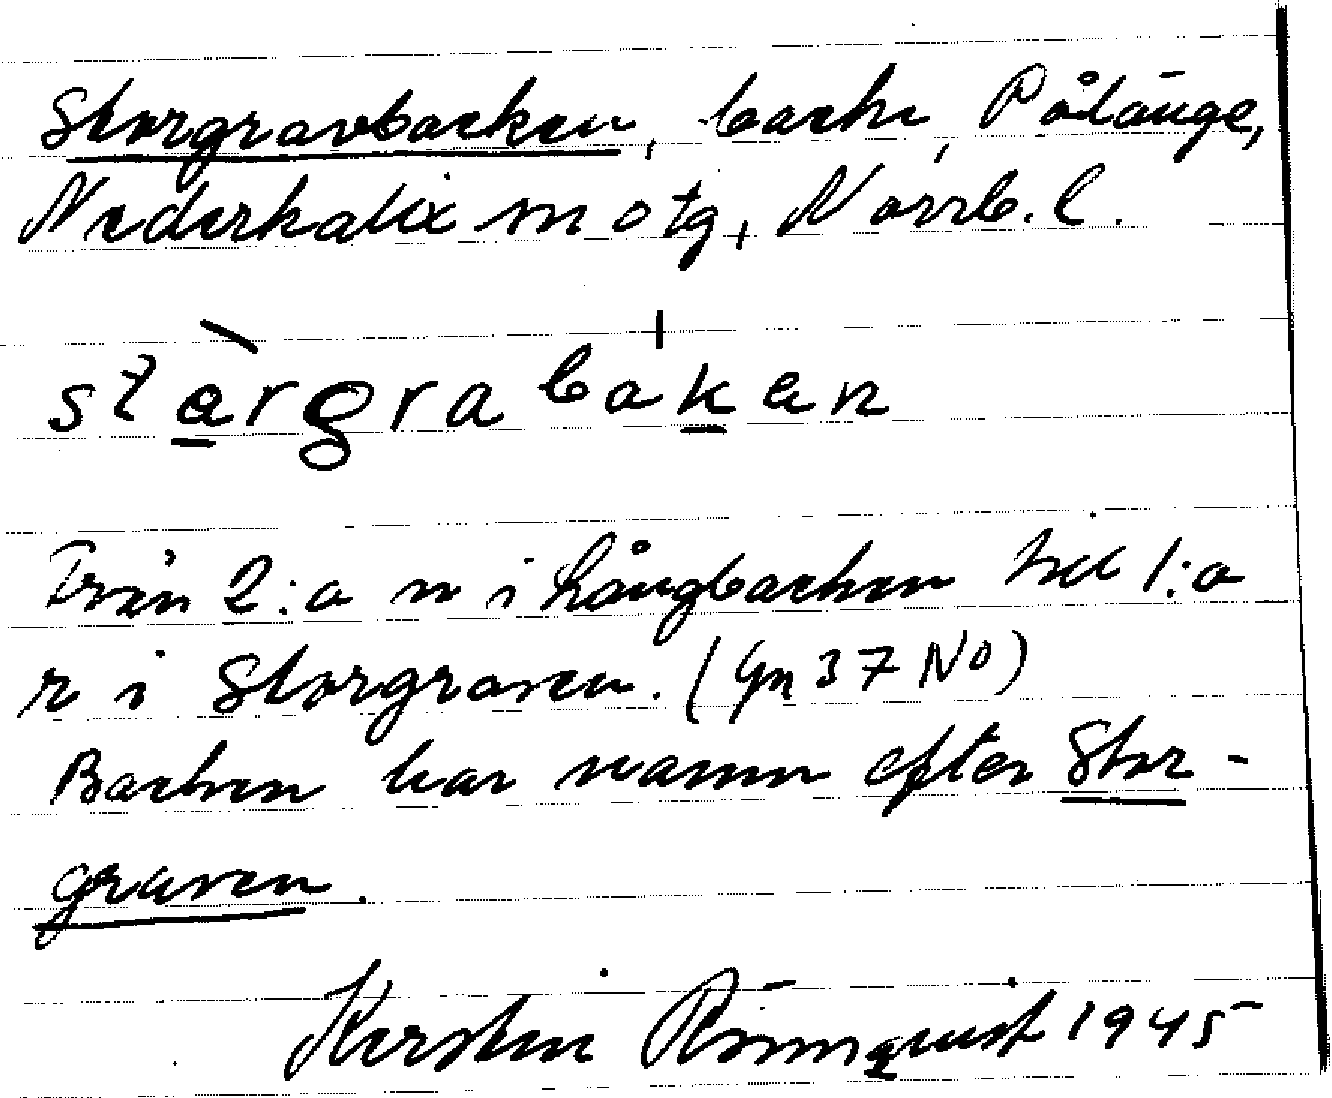 Storgravbacken, backe, Pålänge,
Nederkalix motg, Norrb. l.
stàrgrabaken
Från 2:a n i Långbacken till 1:a
r i Storgraven. (Gn 37 NO)
Backen har namn efter Stor-
graven.
Kerstin Rönnquist 1945